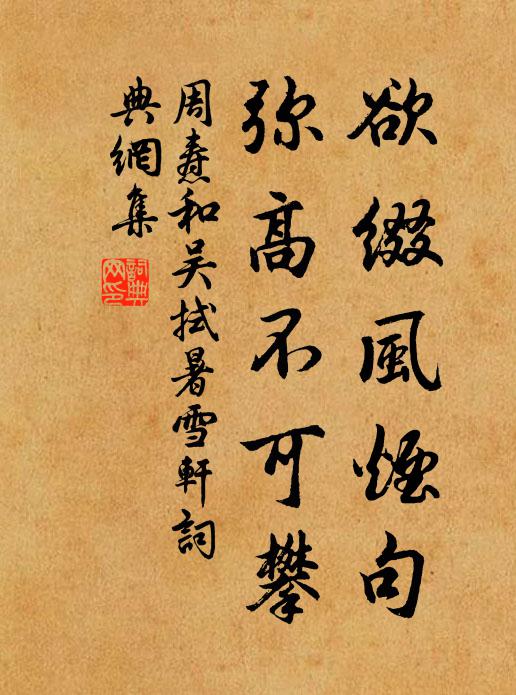 欲綴風煙句
弥高不可攀
周燾和吴拭暑雪軒詞
典網集
詞典網印